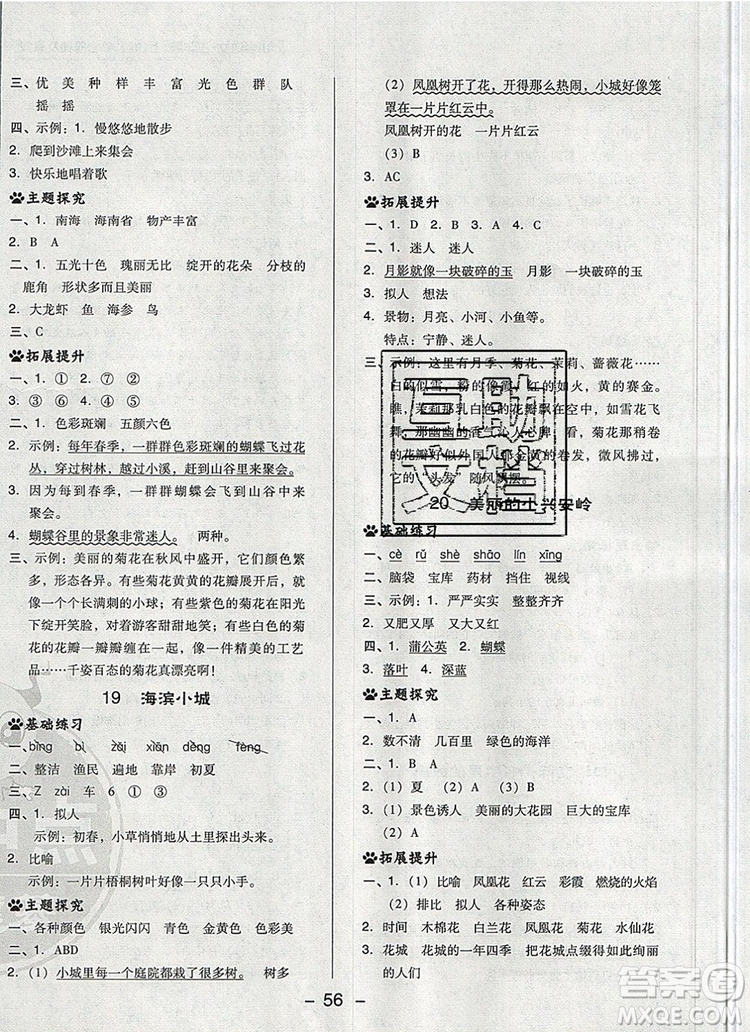 三、优 美 种 样 丰 富 光 色 群 队
摇 摇
四、示例：1. 慢悠悠地散步
2. 爬到沙滩上来集会
3. 快乐地唱着歌
主题探究
一、1. 南海 海南省 物产丰富
2. B A
二、1. 五光十色 瑰丽无比 绽开的花朵 分枝的
鹿角 形状多而且美丽
2. 大龙虾 鱼 海参 鸟
三、C
拓展提升
一、1. ① 2. ⑦ ②
3. ③ ⑥ 4. ⑤ ④
二、1. 色彩斑斓 五颜六色
2. 示例：每年春季，一群群色彩斑斓的蝴蝶飞过花
丛，穿过树林，越过小溪，赶到山谷里来聚会。
3. 因为每年的春季，一群群蝴蝶会飞到山谷中聚
会。
4. 蝴蝶谷里的景象非常迷人。 两种。
三、示例：美丽的菊花在秋风中盛开，它们的颜色、
形态各异。有些菊花黄黄的花瓣展开后，有
的就像一个长满刺的小球；有些紫色的菊花在阳光
下绽开笑脸，对着游客甜甜地笑；有些白色的菊
花的花瓣一瓣瓣缠在一起，像一件精美的工艺
品……千姿百态的菊花真漂亮啊！
19 海滨小城
基础练习
一、bīng bì zǎi xiàn dèng fèng
二、整洁 渔民 遍地 靠岸 初夏
三、Z zài 车 6 ① ③
四、1. 拟人
示例：初春，小草悄悄地从土里探出头来。
2. 比喻
示例：一片片梧桐树叶好像一只只小手。
主题探究
一、各种颜色 银光闪闪 青色 金黄色 色彩美
二、1. ABD
2. (1) 小城里每一个庭院都栽了很多树。 树多
(2) 凤凰树开了花，开得那么热闹，小城好像笼
罩在一片片红云中。
凤凰树开的花 一片片红云
(3) B
3. AC
拓展提升
一、1. D 2. B 3. A 4. C
二、1. 迷人 迷人
2. 月影就像一块破碎的玉 月影 一块破碎的玉
3. 拟人 想法
4. 景物：月亮、小河、小鱼等。
特点：宁静、迷人。
三、示例：这里有月季、菊花、茉莉、蔷薇花……
白的似雪，粉的像霞，红的如火，黄的赛金。
瞧，茉莉那乳白色的花瓣飘在空中，如雪花飞
舞，那幽幽的清香沁人心脾。菊花那稍卷
的花瓣好似外国人那金黄的卷发，微风拂过，
它的“头发”随风飘摆。
20 美丽的小兴安岭
基础练习
一、cè rǔ shè shāo lín xīng
二、脑袋 宝库 药材 挡住 视线
三、示例：1. 严严实实 整整齐齐
2. 又肥又厚 又大又红
四、1. 蒲公英 2. 蝴蝶
3. 落叶 4. 深蓝
主题探究
一、1. A
2. 数不清 几百里 绿色的海洋
二、1. A
2. (1) 夏 (2) A
3. (1) 景色诱人 美丽的大花园 巨大的宝库
(2) A
拓展提升
一、1. (1) 比喻 凤凰花 红云 彩霞 燃烧的火焰
(2) 排比 拟人 凤凰花的姿态
2. 时间 木棉花 白兰花 凤凰花 菊花 水仙花
3. 花城 花城的一年四季 把花城点缀得如此绚丽
的人们
互助
文档
答案圈
MXQE.COM
– 56 –